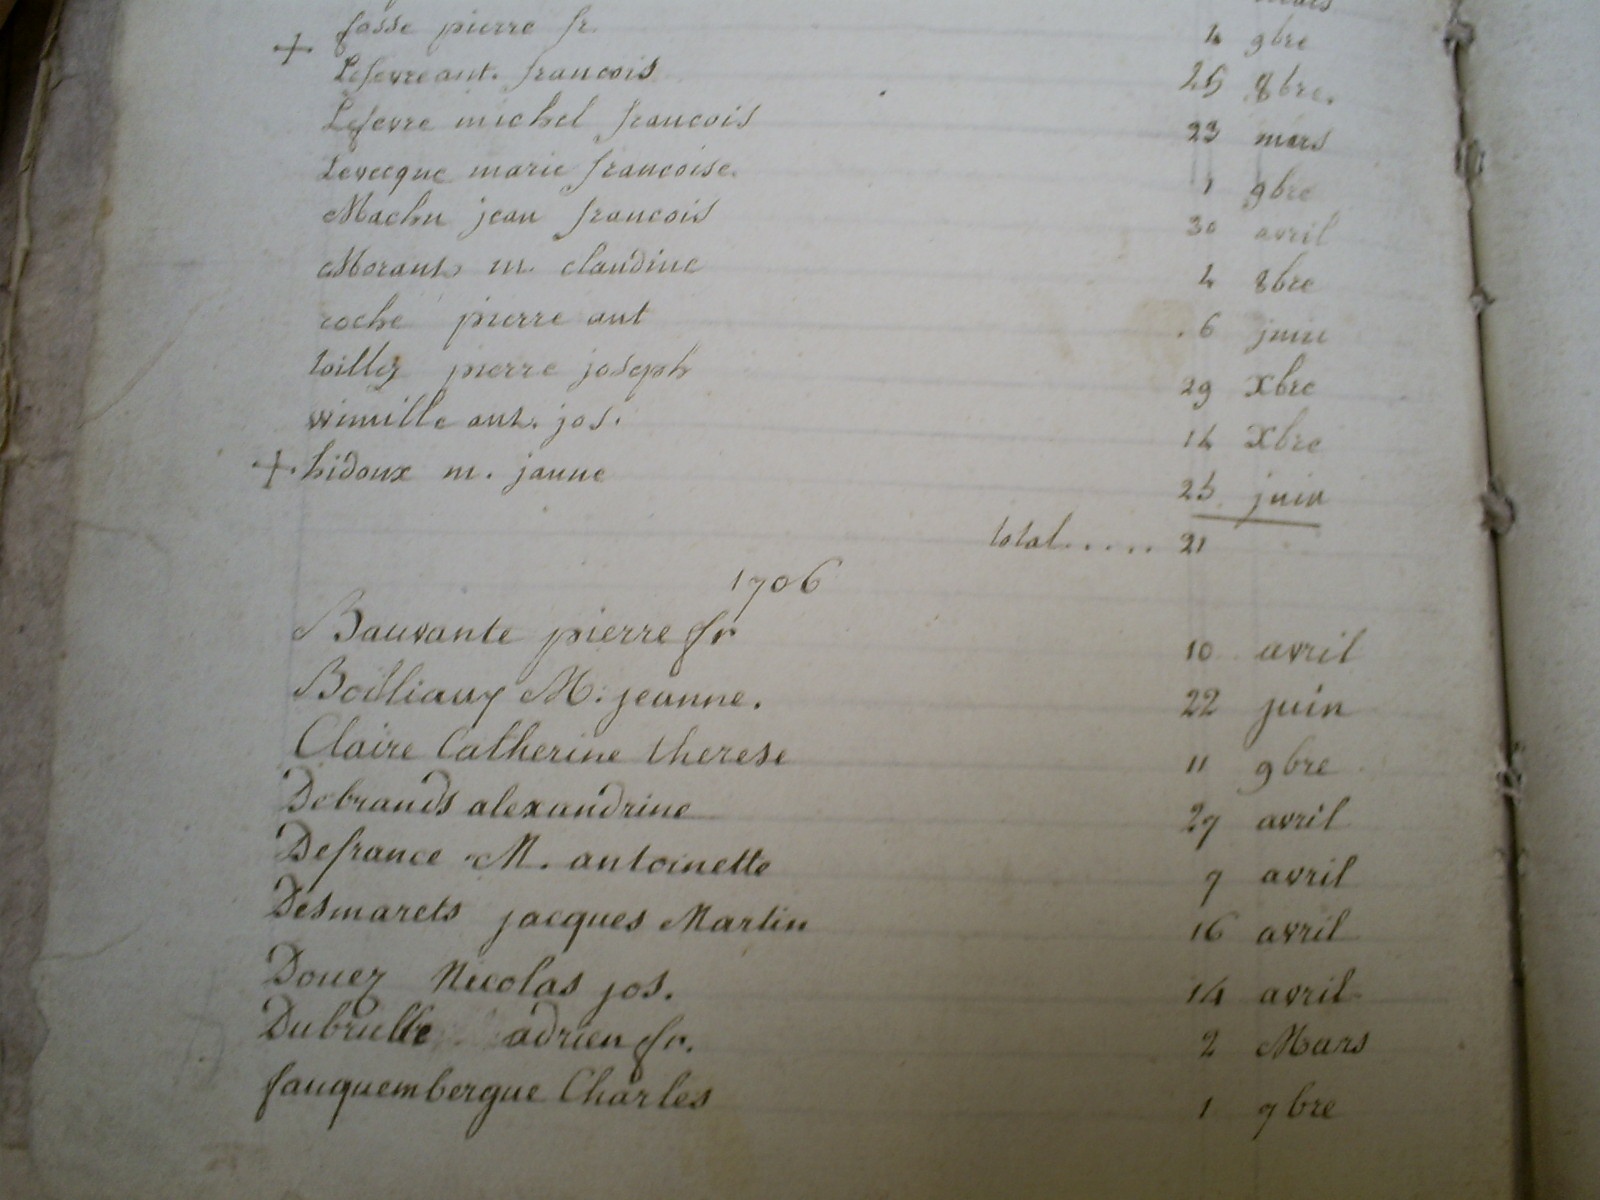 mars
fosse pierre fr. 4 9bre
+ Lefevre ant. francois 25 8bre.
Lefevre michel francois 23 mars
Levecque marie francoise. 1 9bre
Machu jean francois 30 avril
Morant m. claudine 4 8bre
roche pierre ant 6 juin
toilliz pierre joseph 29 xbre
wimille ant. jos. 14 xbre
+ hidoux m. janne 25 juin
total..... 21
1706
Bauvante pierre fr 10 avril
Boilliaux M: jeanne. 22 juin
Claire Catherine therese 11 9bre
Debrands alexandrine 27 avril
Defrance M. antoinette 7 avril
Desmarets jacques Martin 16 avril
Douez Nicolas jos. 14 avril
Dubrulle adrien fr. 2 Mars
fauquembergue Charles 1 7bre